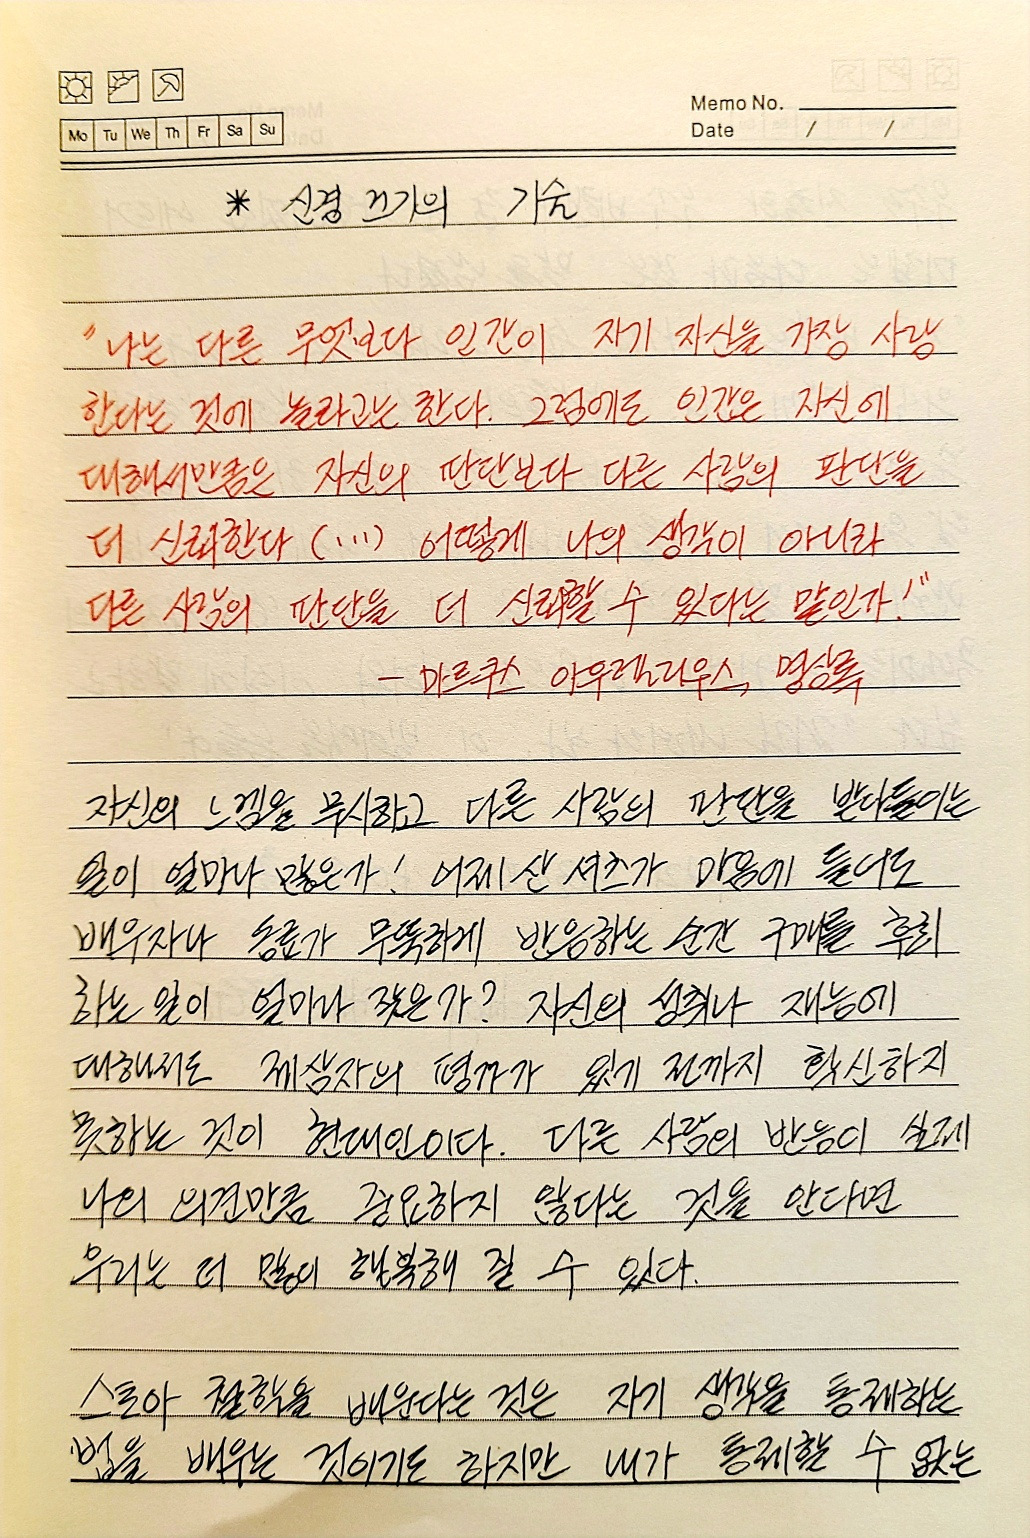 Mo Tu We Th Fr Sa Su
Memo No.
Date / /
* 신경 끄기의 기술
"나는 다른 무엇보다 인간이 자기 자신을 가장 사랑
한다는 것에 놀라고는 한다. 그럼에도 인간은 자신에
대해서만큼은 자신의 판단보다 다른 사람의 판단을
더 신뢰한다 (...) 어떻게 나의 생각이 아니라
다른 사람의 판단을 더 신뢰할 수 있다는 말인가!"
- 마르쿠스 아우렐리우스, 명상록
자신의 느낌을 무시하고 다른 사람의 판단을 받다들이는
일이 얼마나 많은가! 어제 산 셔츠가 마음에 들어도
배우자나 동료가 무뚝하게 반응하는 순간 구매를 후회
하는 일이 얼마나 잦은가? 자신의 성취나 재능에
대해서도 제삼자의 평가가 있기 전까지 확신하지
못하는 것이 현대인이다. 다른 사람의 반응이 실제
나의 의견만큼 중요하지 않다는 것을 안다면
우리는 더 많이 행복해 질 수 있다.
스토아 철학을 배운다는 것은 자기 생각을 통제하는
법을 배우는 것이기도 하지만 내가 통제할 수 없는